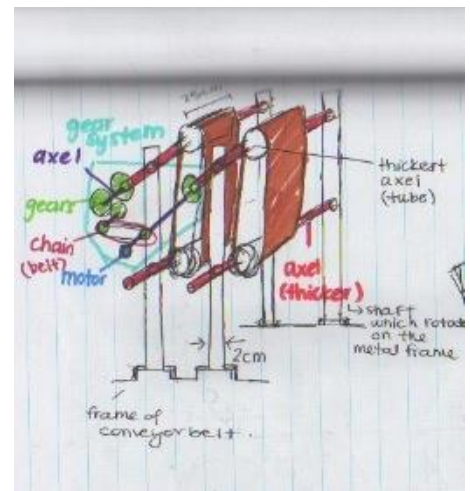 gear
system
axel
gears
chain
(belt)
motor
thickert
axel
(tube)
axel
(thicker)
shaft
which rotat
on the
metal frame
2cm
frame of
conveyor belt.